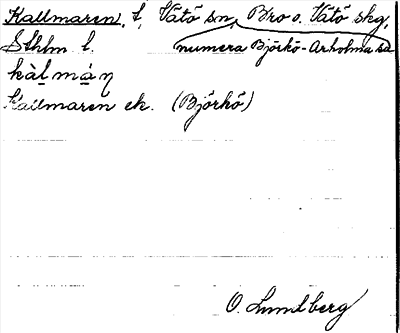 Kallmaren, f, Vätö sn, Bro o. Vätö skg,
Sthlm l. numera Björkö-Arholma sn
kàl màŋ
Kallmaren ek. (Björkö)
O. Lundberg